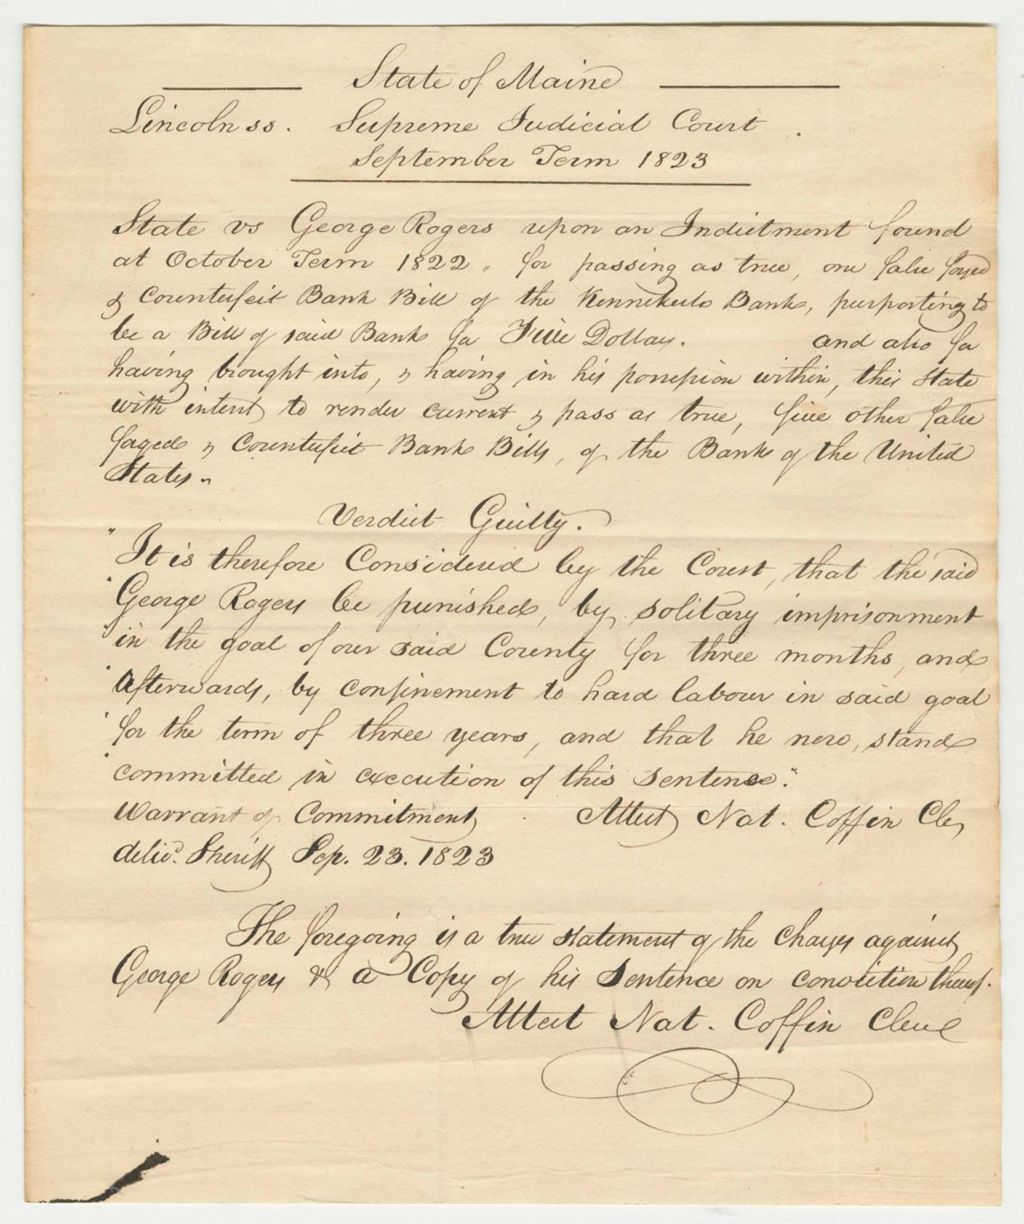 State of Maine
Lincoln ss. Supreme Judicial Court.
September Term 1823
State vs George Rogers upon an Indictment found
at October Term 1822, for passing as true, one false forged
& Counterfeit Bank Bill of the Kennebeck Bank, purporting to
be a Bill of said Bank for Five Dollars. and also for
having brought into, & having in his possession within, this State
with intent to render current & pass as true, five other false
forged & Counterfeit Bank Bills, of the Bank of the United
States.
Verdict Guilty.
"It is therefore Considered by the Court, that the said
"George Rogers be punished, by solitary imprisonment
"in the goal of our said County for three months, and
"Afterwards, by confinement to hard labour in said goal
"for the term of three years, and that he now, stand
"committed in execution of this Sentence."
Warrant of Commitment Attest Nat. Coffin Cle,
deliv.d Sheriff Sep. 23. 1823
The foregoing is a true statement of the Charges against
George Rogers & a Copy of his Sentence on conviction thereof.
Attest Nat. Coffin Clerk